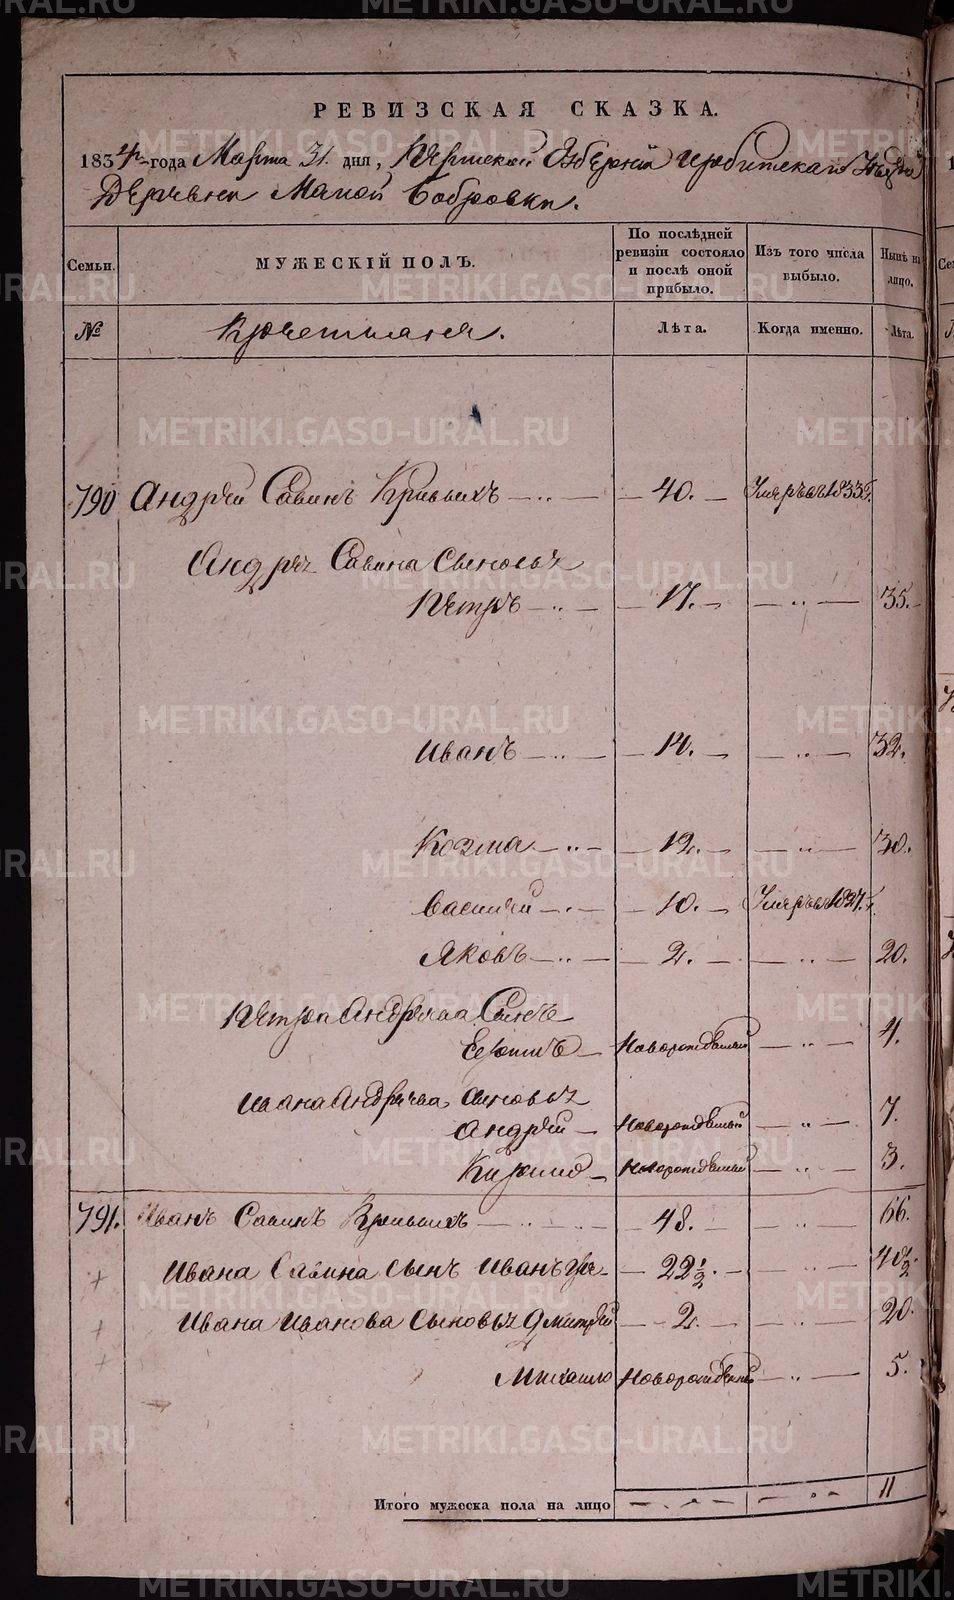 METRIKI.GASO-URAL.RU
РЕВИЗСКАЯ СКАЗКА.
1834 года Марта 31 дня, Пермской Губерніи Ирбитскаго Уѣзда
Деревни Малой Бобровки.
Семьи. МУЖЕСКІЙ ПОЛЪ. По послѣдней ревизіи состояло и послѣ оной прибыло. Изъ того числа выбыло. Нынѣ на лицо.
№ Крестьяня. Лѣта. Когда именно. Лѣта.
790 Андрѣй Савинъ Кривыхъ 40.
Андрѣя Савина Сыновья
Петръ 17. 35.
Иванъ 14. 32.
Козма 12. 30.
Василій 10.
Яковъ 2. 20.
Петра Андрѣева Сынъ
Новорожденный 4.
Ивана Андрѣева сыновья
Андрѣй Новорожденный 7.
Кирило Новорожденный 3.
791. Иванъ Савинъ Кривыхъ 48. 66.
Ивана Савина сынъ Иванъ 22½. 40½.
Ивана Иванова Сыновья Дмитрѣй 2. 20.
Михаило Новорожденный 5.
Итого мужеска пола на лицо 11